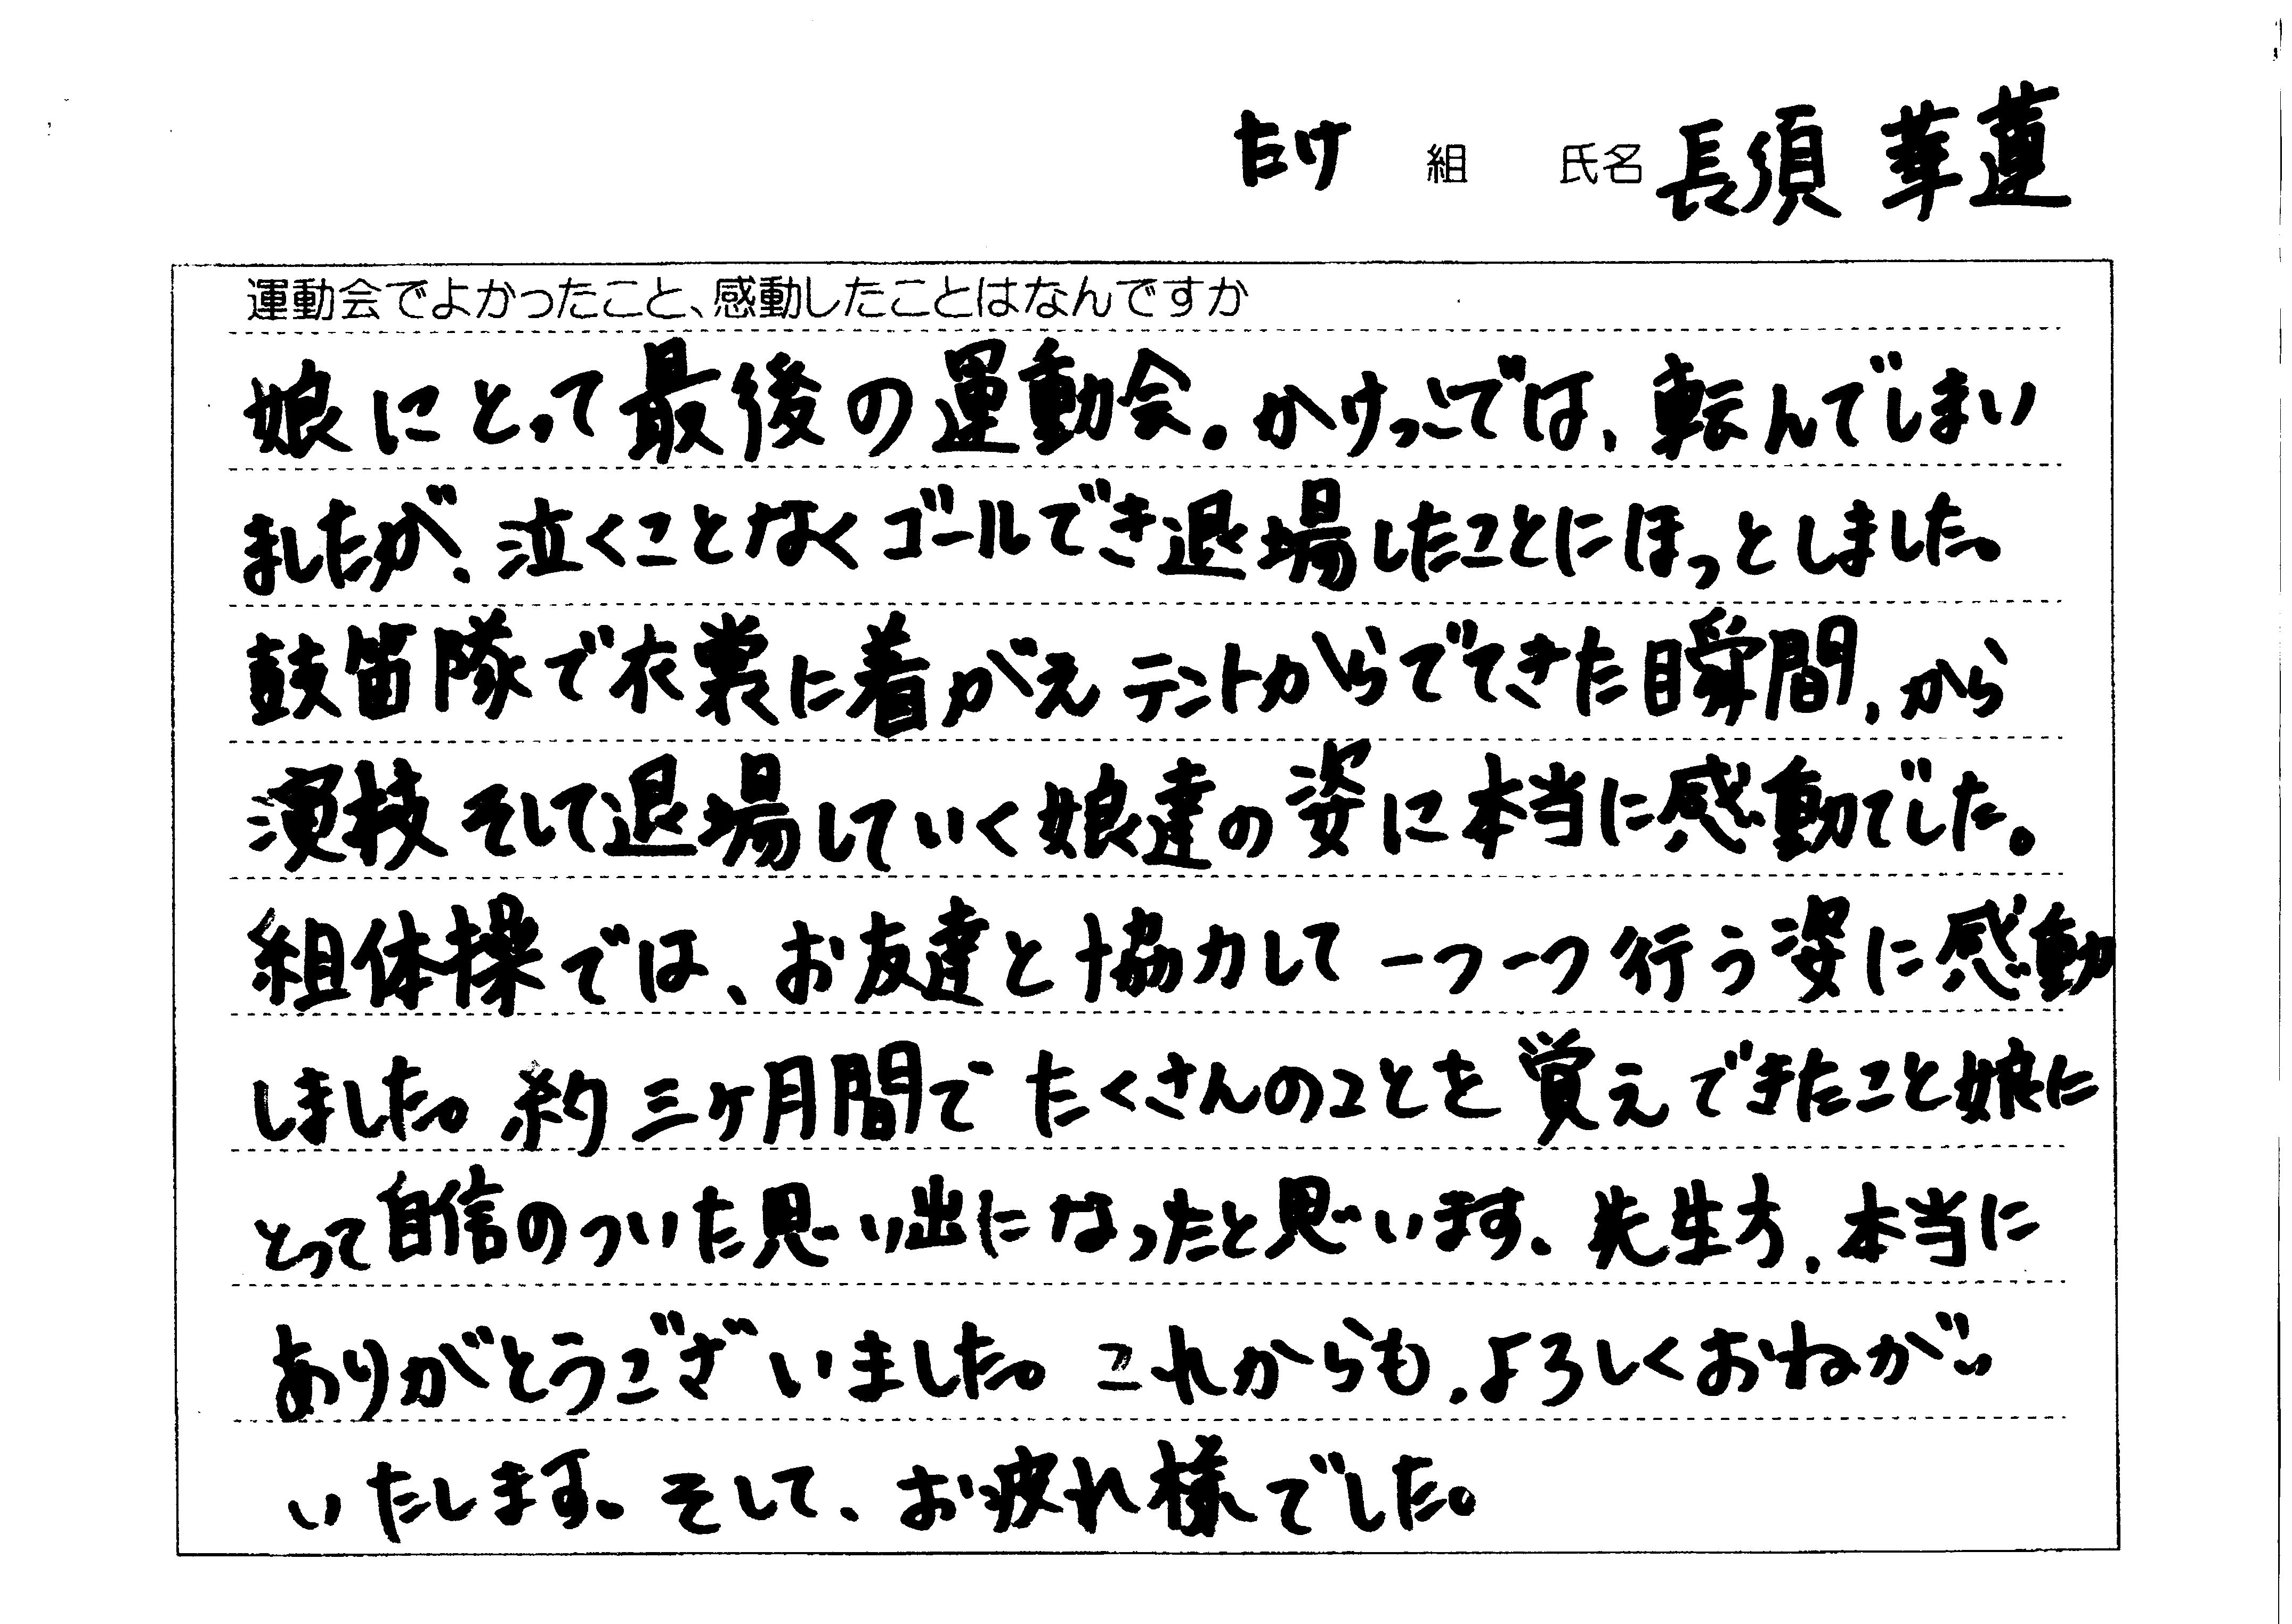 たけ 組 氏名 長須 華蓮
運動会でよかったこと、感動したことはなんですか
娘にとって最後の運動会。かけっこでは、転んでしまい
ましたが、泣くことなくゴールでき退場したことにほっとしました。
鼓笛隊で衣裳に着がえテントからでてきた瞬間、から
演技そして退場していく娘達の姿に本当に感動でした。
組体操では、お友達と協力して一つ一つ行う姿に感動
しました。約三ヶ月間でたくさんのことを覚えできたこと娘に
とって自信のついた思い出になったと思います。先生方、本当に
ありがとうございました。これからも、よろしくおねがい
いたします。そして、お疲れ様でした。